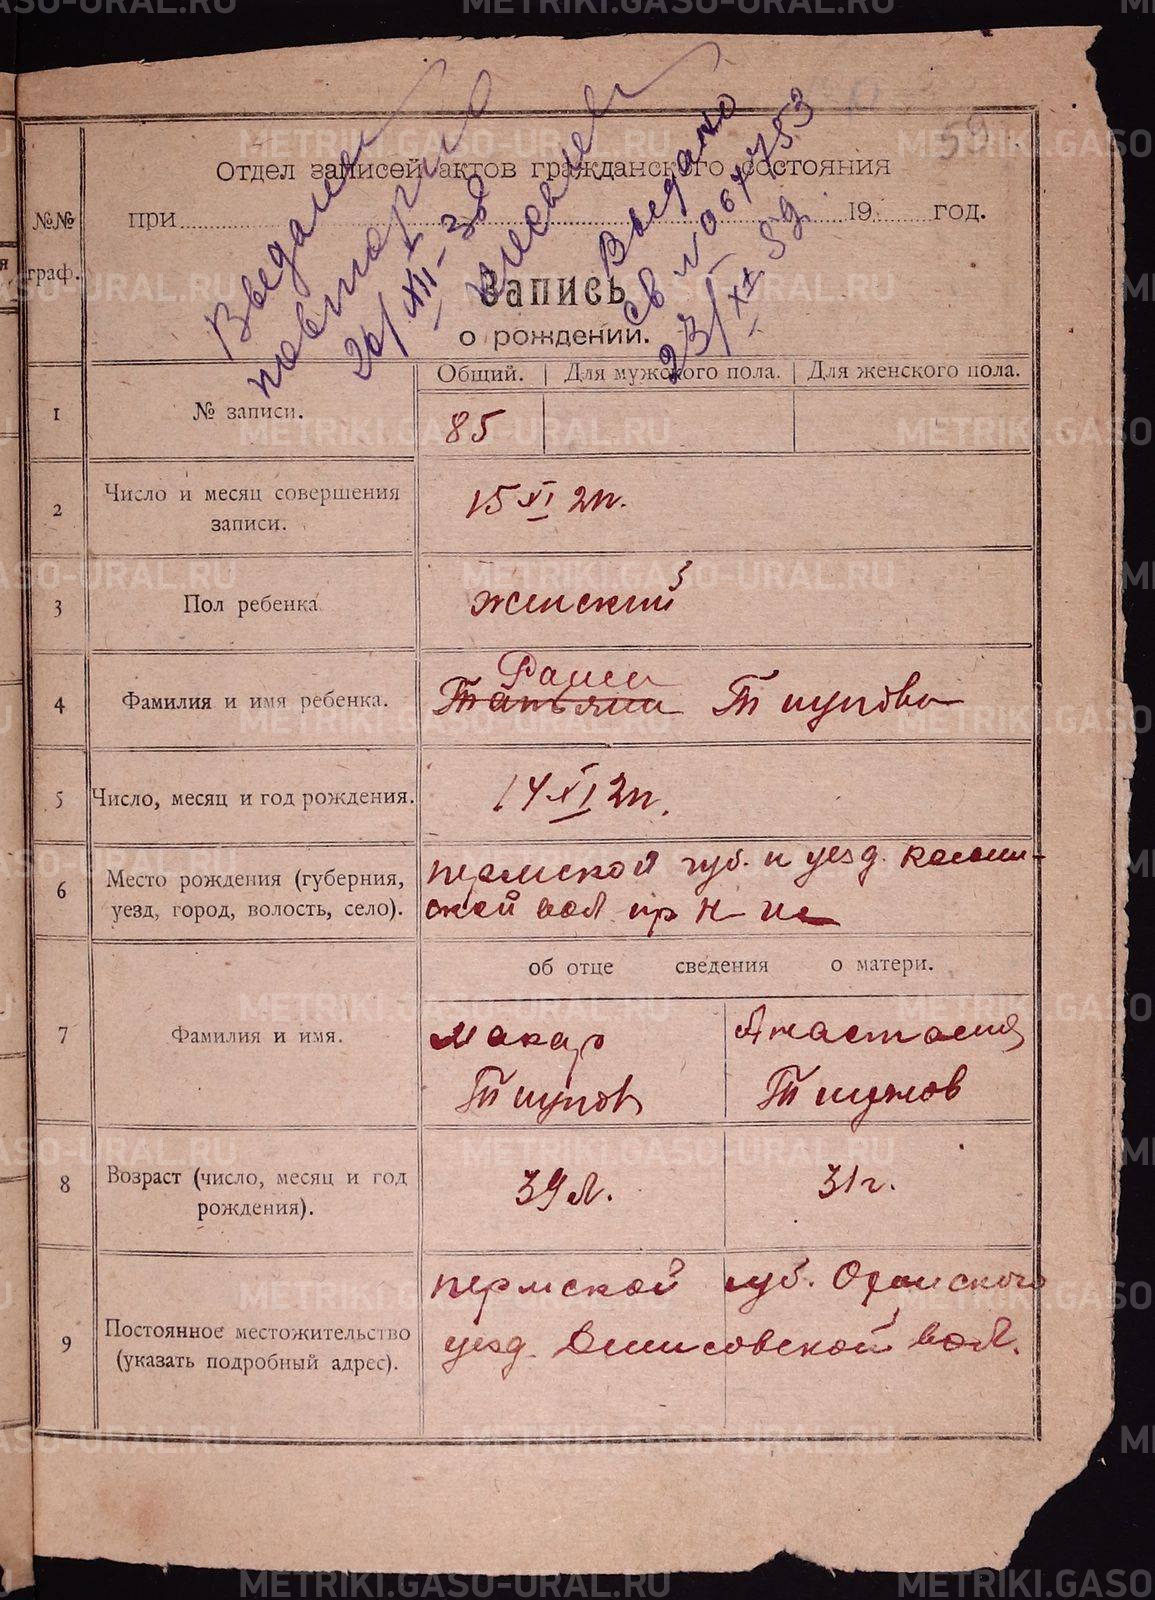 59
Отдел записей актов гражданского состояния
№№
граф.
при 19 год.
Выдано
повторно
26/XII-38
Выдано
св N 067753
23/XII 59.
Запись
о рождении.
Общий. Для мужского пола. Для женского пола.
1 № записи. 85
2 Число и месяц совершения
записи.
15 XI 21г.
3 Пол ребенка женский
4 Фамилия и имя ребенка.
Раиса
Татьяна
5 Число, месяц и год рождения. 14 XI 21г.
6 Место рождения (губерния,
уезд, город, волость, село).
пермской губ. и уезд.
ской вол
об отце сведения о матери.
7 Фамилия и имя.
Макар
Анастасия
8 Возраст (число, месяц и год
рождения).
39 л. 31 г.
9 Постоянное местожительство
(указать подробный адрес).
пермской губ. Оханского
уезд. Денисовской вол.
METRIKI.GASO-URAL.RU